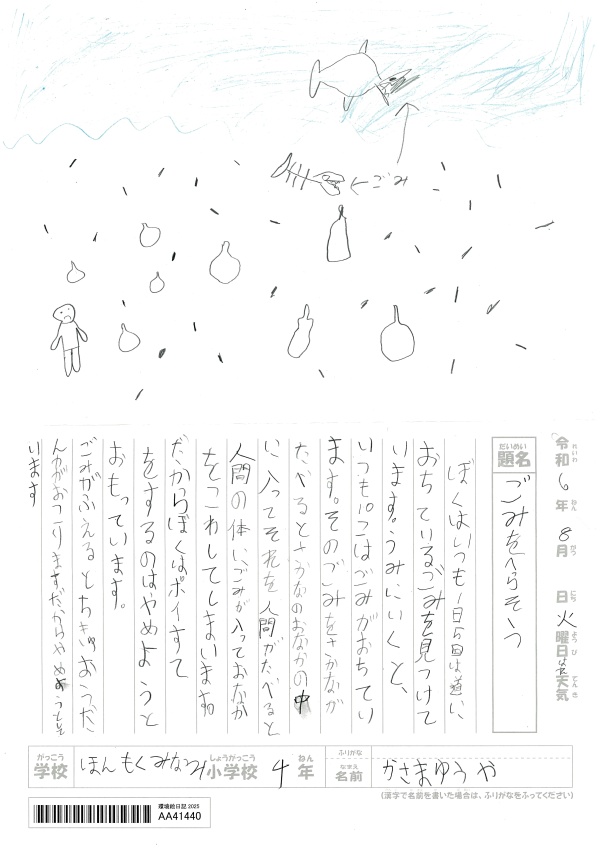 ごみ
令和6年8月 日火曜日 天気
れいわ ねん がつ にち ようび てんき
題名 ごみをへらそう
だいめい
ぼくはいつも1日5回は道に
おちているごみを見つけて
います。うみにいくと、
いつも10こはごみがおちてい
ます。そのごみをさかなが
たべるとさかなのおなかの中
に入ってそれを人間がたべると
人間の体にごみが入っておなか
をこわしてしまいます。
だからぼくはポイすて
をするのはやめようと
おもっています。
ごみがふえるとちきゅうおうだ
んかがおこりますだからやめようとおも
います
がっこう
学校 ほんもくみなみ小学校 4年
しょうがっこう ねん
ふりがな
なまえ
名前 かさまゆうや
(漢字で名前を書いた場合は、ふりがなをふってください)
環境絵日記 2025
AA41440